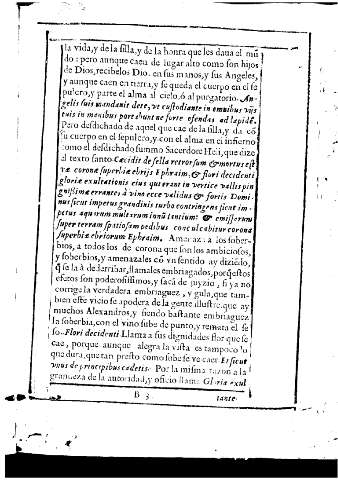 la vida, y de la silla, y de la honra que les daua el mũ
do : pero aunque caen de lugar alto como son hijos
de Dios, recibelos Dios en sus manos, y sus Angeles,
y aunque caen en tierra, y se queda el cuerpo en el se
pulcro, y parte el alma al cielo, ó al purgatorio. An-
gelis suis mandauit de te, vt custodiant te in omnibus vijs
tuis in manibus portabunt ne forte ofendas ad lapidẽ.
Pero desdichado de aquel que cae de la silla, y da cõ
su cuerpo en el sepulcro, y con el alma en el infierno
como el desdichado summo Sacerdote Heli, que dizo
al texto santo Cæcidit de sella retrorsum & mortus est
væ coronæ superbiæ ebrijs Ephraim, & flori decidenti
gloriæ exultationis eius qui erant in vertice vallis pin
guissimæ errantes à vino ecce validus & fortis Domi-
nus sicut impetus grandinis turbo confringens sicut im-
petus aquarum multarum inundantium & emissarum
super terram spatiosam pedibus conculcabitur corona
superbiæ ebriorum Ephraim. Amenaza a los sober-
bios, a todos los de corona que son los ambiciosos,
y soberbios, y amenazales cõ vn sentido ay diziẽdo,
q̃ se la à de derribar, llamales embriagados, porq̃ estos
efetos son poderosissimos, y sacã de juyzio, si ya no
corrige la verdadera embriaguez, y gula, que tam-
bien este vicio se apodera de la gente illustre, que ay
muchos Alexandros, y siendo bastante embriaguez
la soberbia, con el vino sube de punto, y remata el se
so. Flori decidenti Llama a sus dignidades flor que se
cae, porque aunque alegra la vista es tampoco lo
que dura, que tan presto como sube se ve caer Et sicut
vnus de principibus cadetis. Por la misma razon a la
grandeza de la autoridad, y oficio llama Gloria exul
B 3 tante-